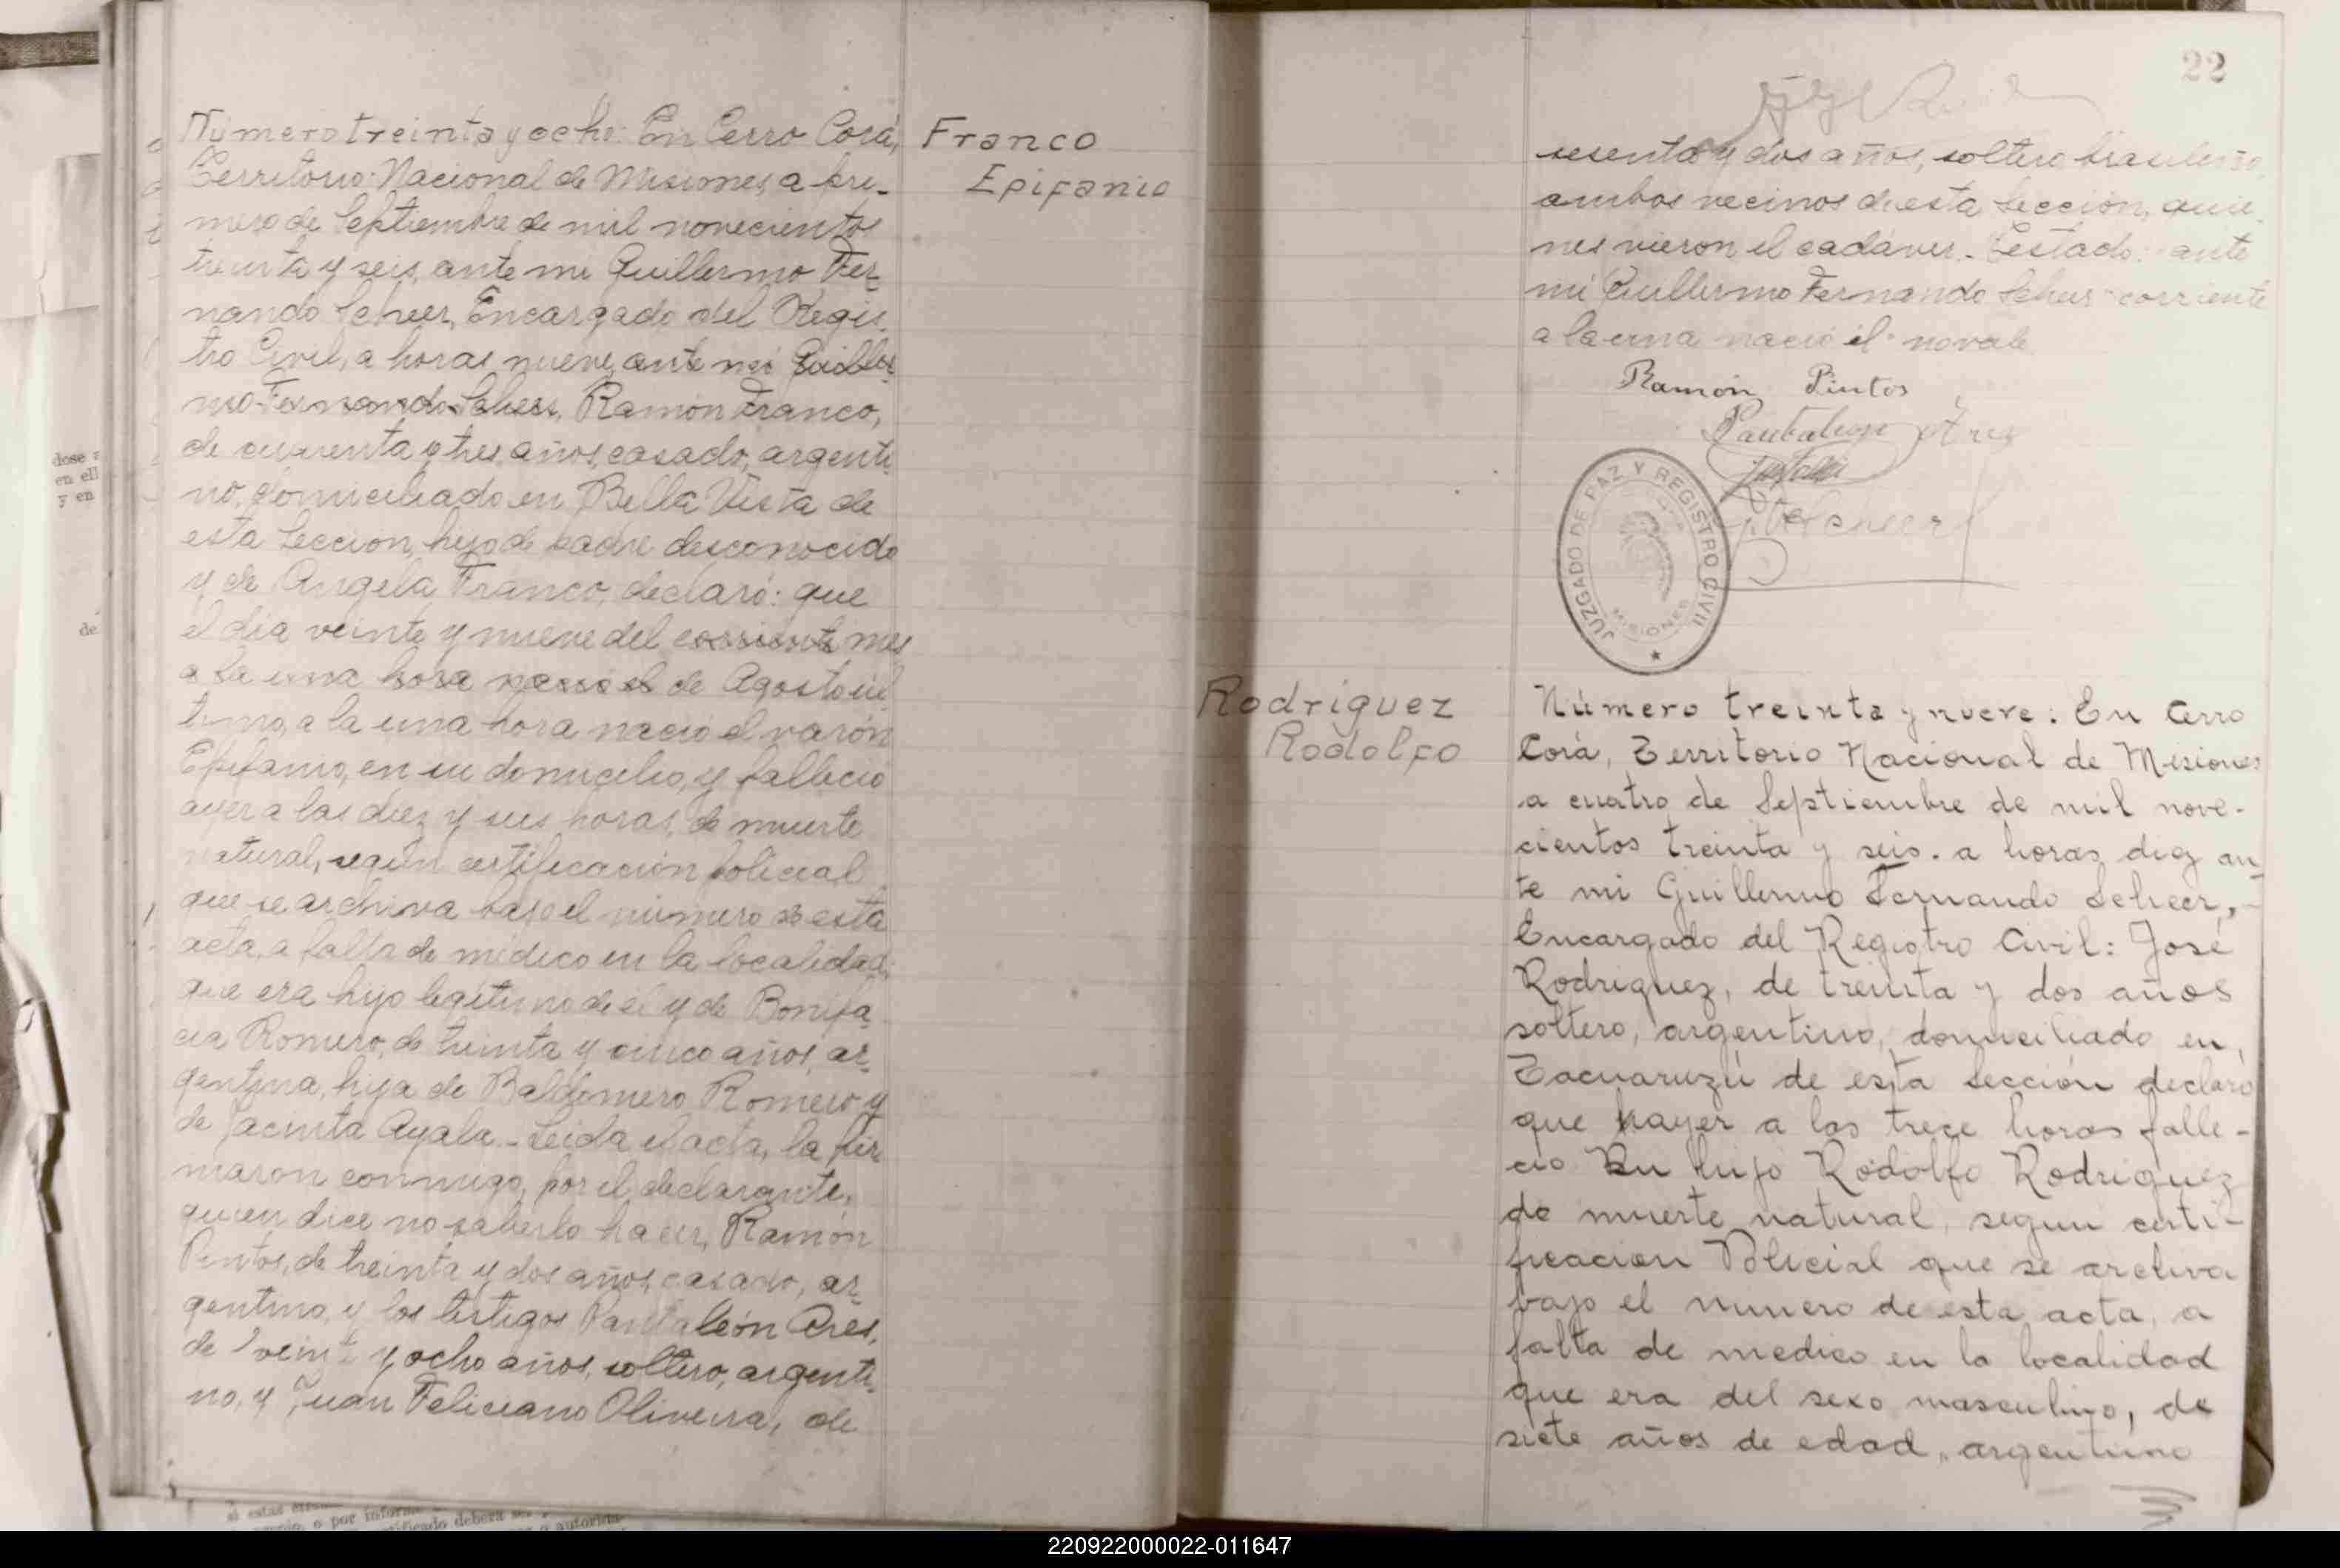 Número treinta y ocho: En Cerro Corá,
Territorio Nacional de Misiones, a pri-
mero de Septiembre de mil novecientos
treinta y seis, ante mi Guillermo Fer-
nando Scheer, Encargado del Regis-
tro Civil, a horas nueve, ante mi Guiller-
mo Fernando Scheer, Ramón Franco,
de cuarenta y tres años, casado, argenti-
no, domiciliado en Bella Vista de
esta Sección, hijo de padre desconocido
y de Angela Franco, declaró: que
el dia veinte y nueve del corriente mes
a la una hora nació el de Agosto úl-
timo, a la una hora nació el varón
Epifanio, en su domicilio, y falleció
ayer a las diez y seis horas, de muerte
natural, según certificación policial
que se archiva bajo el número de esta
acta, a falta de médico en la localidad;
que era hijo legítimo de él y de Bonifa-
cia Romero, de treinta y cinco años, ar-
gentina, hija de Baldomero Romero y
de Jacinta Ayala.- Leida el acta, la fir-
maron conmigo, por el declarante,
quien dice no saberlo hacer, Ramón
Pintos, de treinta y dos años, casado, ar-
gentino, y los testigos Pantaleón Ares,
de veinte y ocho años, soltero, argenti-
no, y Juan Feliciano Oliveira, de
Franco
Epifanio
22
sesenta y dos años, soltero, brasileño,
ambos vecinos de esta Sección, quie-
nes vieron el cadáver.- Testado: ante
mi Guillermo Fernando Scheer-corriente
a la una nació el-no vale
Ramón Pintos
Pantaleon Ares
JUZGADO DE PAZ Y REGISTRO CIVIL
MISIONES
Scheer
Rodriguez
Rodolfo
Número treinta y nueve: En Cerro
Corá, Territorio Nacional de Misiones
a cuatro de Septiembre de mil nove-
cientos treinta y seis. a horas diez an-
te mi Guillermo Fernando Scheer,-
Encargado del Registro Civil: José
Rodriguez, de treinta y dos años
soltero, argentino, domiciliado en,
Tacuaruzú de esta Sección declaró
que hayer a las trece horas falle-
cio su hijo Rodolfo Rodriguez
de muerte natural, segun certi-
ficacion Policial que se archiva
bajo el numero de esta acta, a
falta de medico en la localidad
que era del sexo masculino, de
siete años de edad, argentino
220922000022-011647